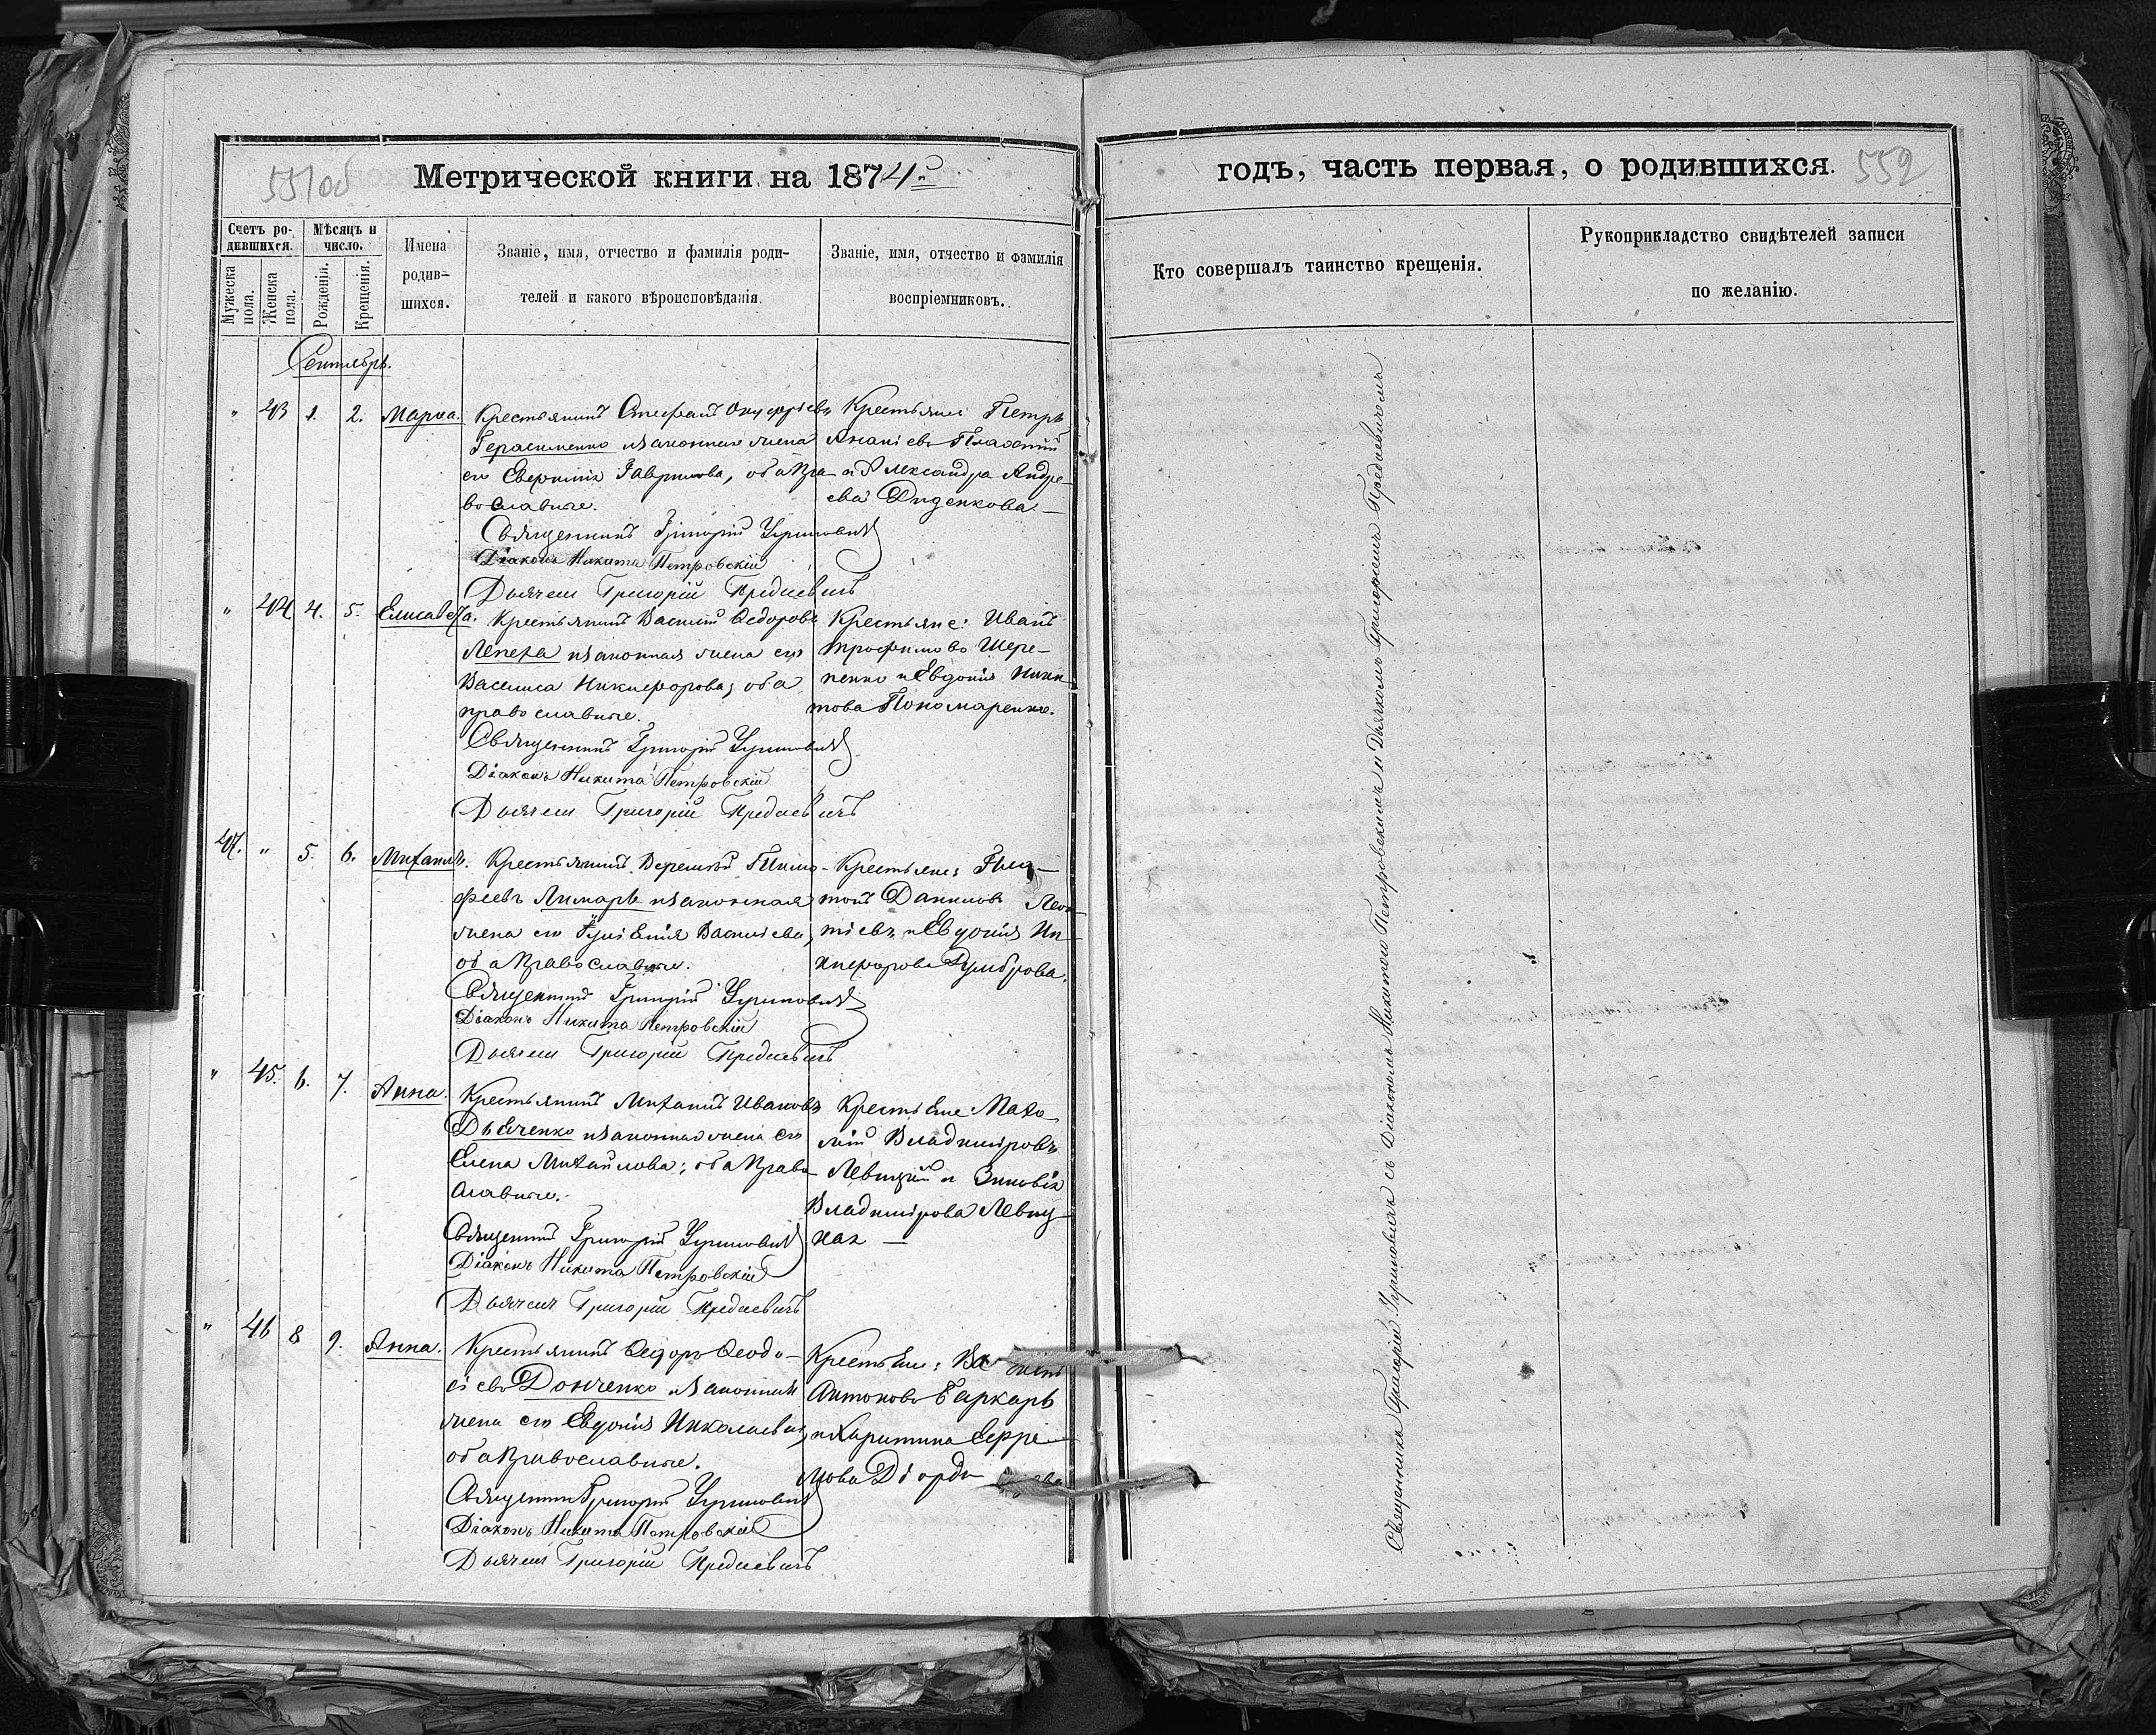 551об
Метрической книги на 1874й
Счетъ ро-
дившихся.
Мѣсяцъ и
число.
Имена
родив-
шихся.
Званіе, имя, отчество и фамилія роди-
телей и какого вѣроисповѣданія.
Званіе, имя, отчество и фамилія
воспріемниковъ.
Мужеска
пола.
Женска
пола.
Рожденія.
Крещенія.
Сентябрь.
" 43 1. 2. Марѳа.
Крестьянинъ Стефанъ Онуфріевъ
Герасименко и законная жена
его Евфимія Гаврилова, оба пра-
вославные.
Крестьяне: Петръ
Ананіевъ
и Александра Андре-
ева Диденкова.
Священникъ Григорій
Діаконъ Никита Петровскій
Дьячекъ Григорій Предаевичъ
" 44 4. 5. Елисавета.
Крестьянинъ Василій Ѳедоровъ
Лепеха и законная жена его
Васелиса Никифорова; оба
православные.
Крестьяне: Иванъ
Трофимовъ Шере-
и Евдокія Ники-
това Пономаренко.
Священникъ Григорій
Діаконъ Никита Петровскій
Дьячекъ Григорій Предаевичъ
47. " 5. 6. Михаилъ.
Крестьянинъ Тимо-
феевъ Лимарь и законная
жена его Васильева,
оба православные.
Крестьяне:
Даниловъ Леон-
тіевъ и Евдокія Ни-
кифорова
Священникъ Григорій
Діаконъ Никита Петровскій
Дьячекъ Григорій Предаевичъ
" 45. 6. 7. Анна.
Крестьянинъ Михаилъ Ивановъ
Дьяченко и законная жена его
Елена Михайлова; оба право-
славные.
Крестьяне:
Владиміровъ
Левицкій и Зиновія
Владимірова Левиц-
кая
Священникъ Григорій
Діаконъ Никита Петровскій
Дьячекъ Григорій Предаевичъ
" 46 8 9. Анна.
Крестьянинъ Ѳедоръ Ѳеодо-
сіевъ Донченко и законная
жена его Евдокія Николаева,
оба православные.
Крестьяне:
Антоновъ
и Харитина
Священникъ Григорій
Діаконъ Никита Петровскій
Дьячекъ Григорій Предаевичъ
годъ, часть первая, о родившихся.
552
Кто совершалъ таинство крещенія.
Рукоприкладство свидѣтелей записи
по желанію.
Священника Григорій съ Діакономъ Никитою Петровскимъ и Дьячкомъ Григоріемъ Предаевичемъ